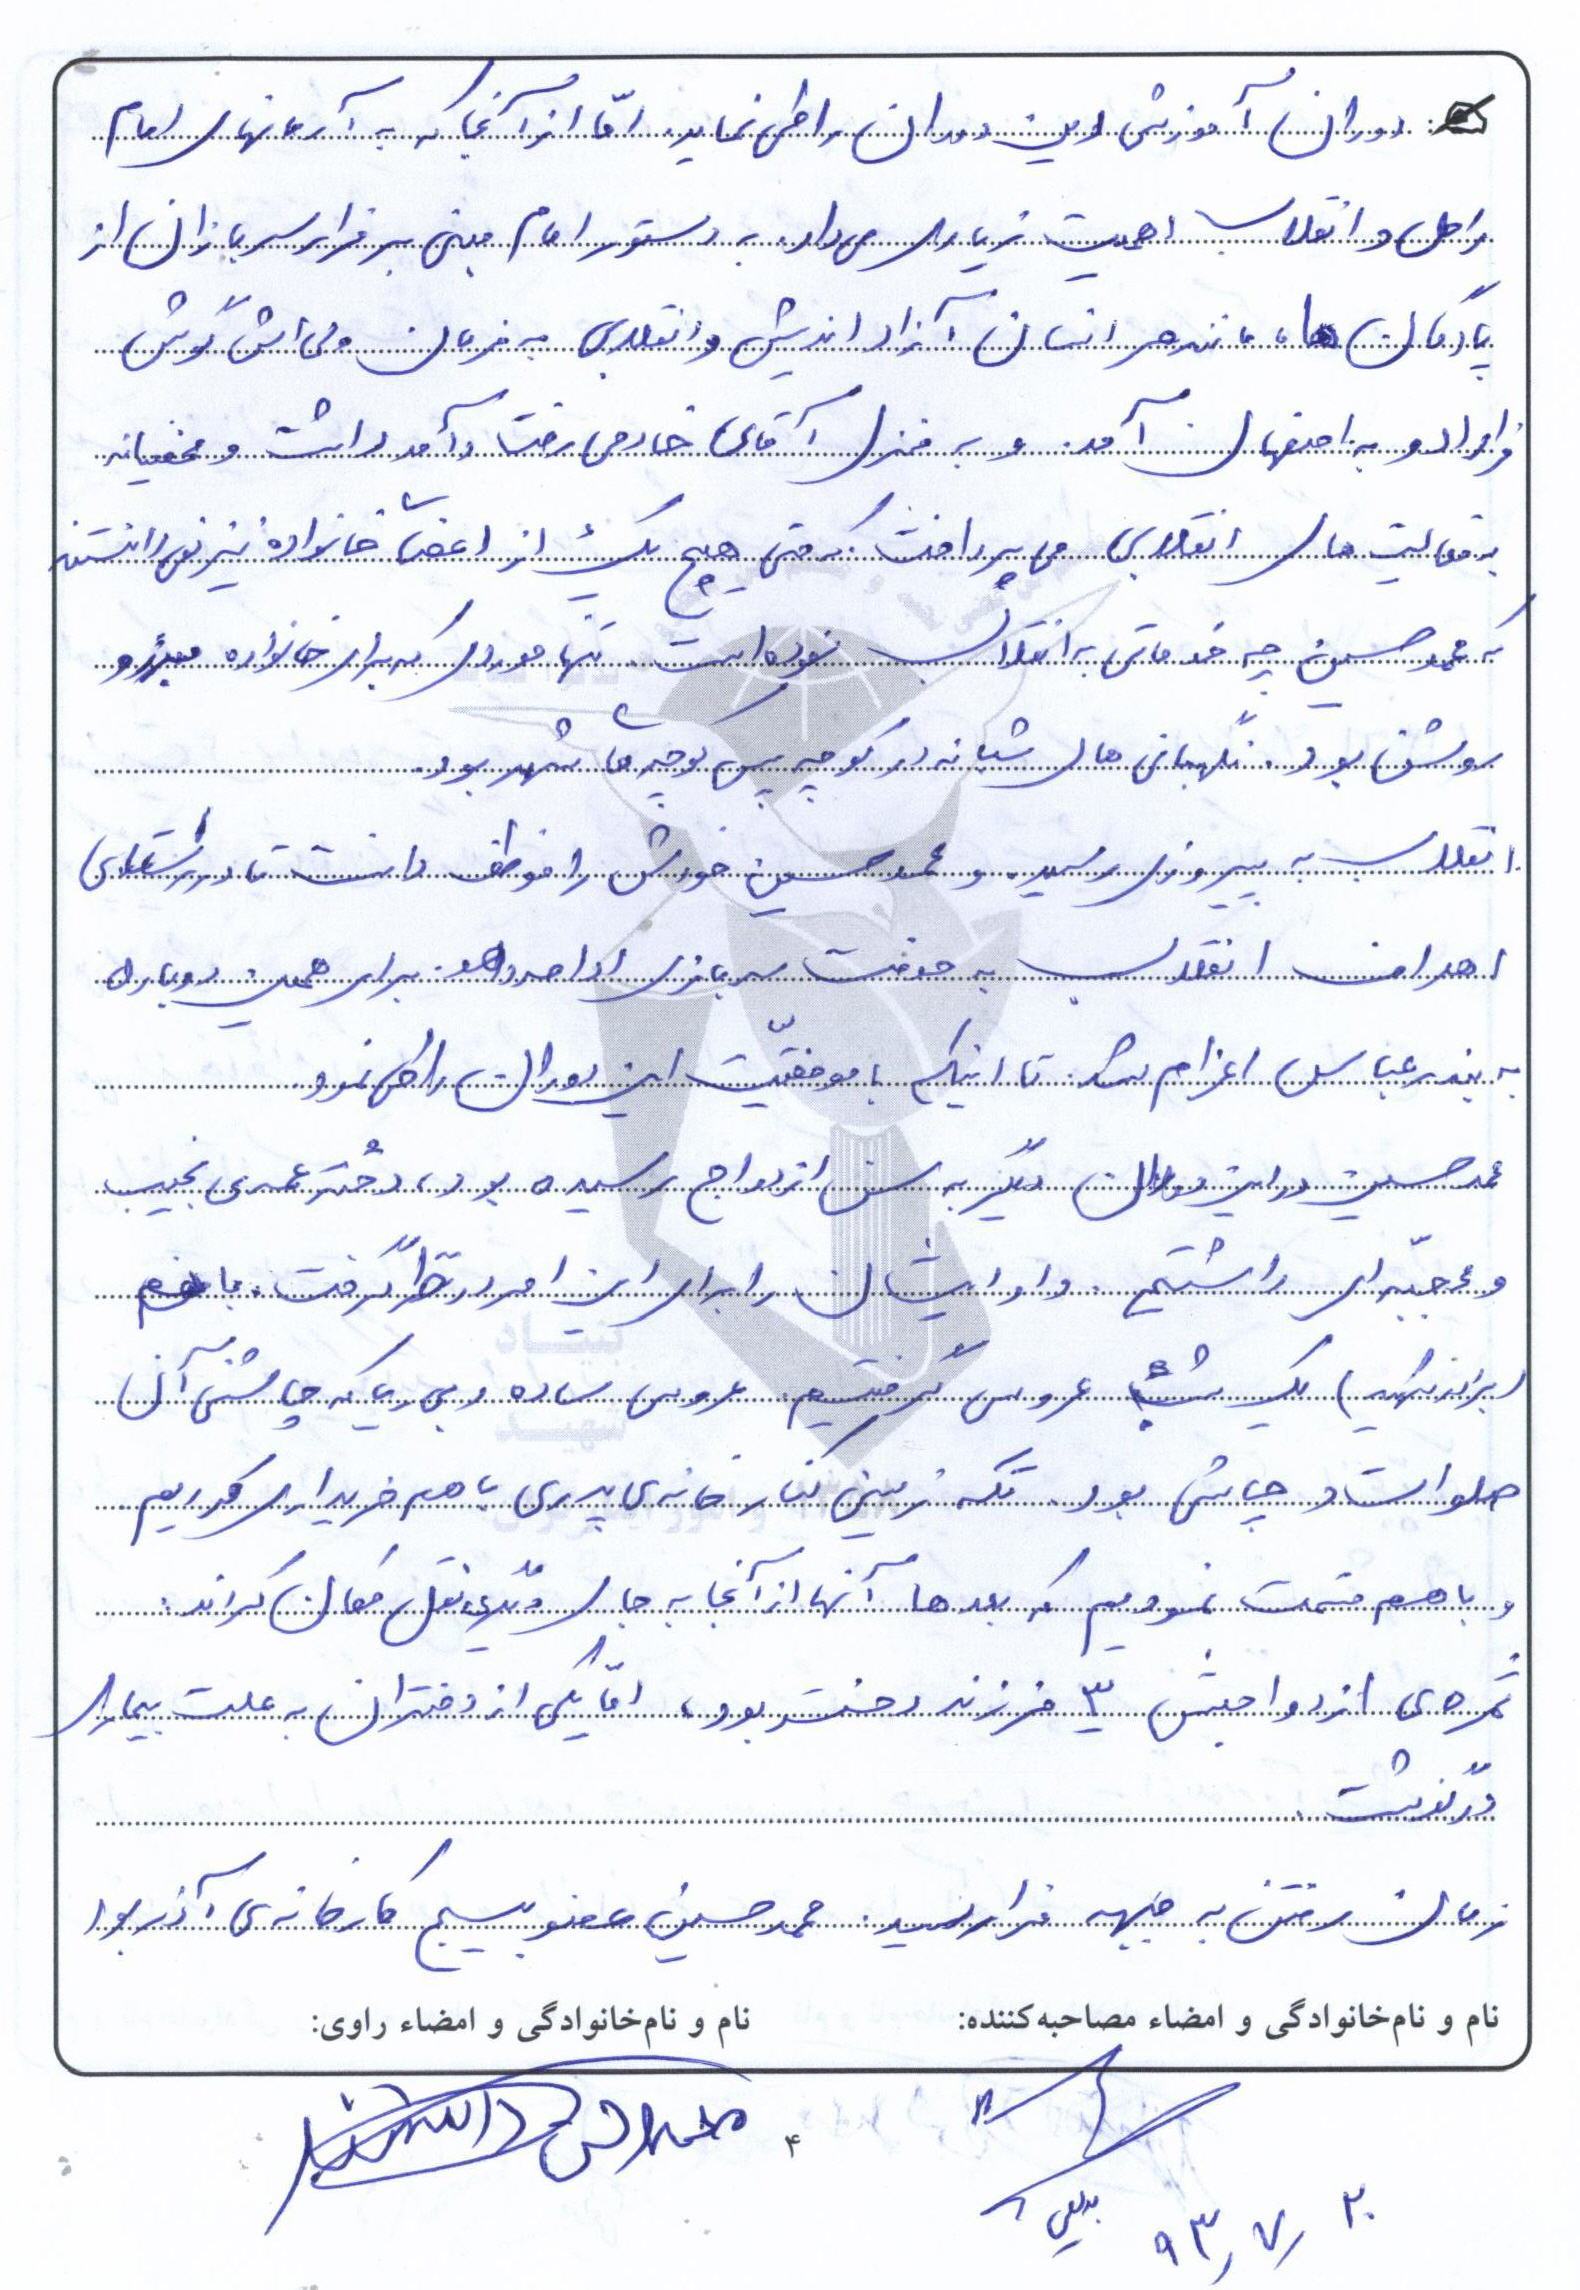 دوران آموزشی این دوران را طی نماید. امّا از آنجا که به آرمانهای امام
راحل و انقلاب اهمیت زیادی می‌داد. به دستور امام مبنی بر فرار سربازان از
پادگان ها، مانند هر انسان آزاد اندیش و انقلابی به فرمان ولی اش گوش
فرا داد و به اصفهان آمد. و به منزل آقای خادمی رفت و آمد داشت و مخفیانه
به فعالیت های انقلابی می پرداخت که حتی هیچ یک از اعضای خانواده نیز نمی دانستند
که محمد حسین چه خدماتی به انقلاب نموده است. تنها موردی که برای خانواده مبرز و
روشن بود. نگهبانی های شبانه در کوچه پس کوچه های شهر بود.
انقلاب به پیروزی رسید. و محمد حسین خودش را موظف دانست تا در راستای
اهداف انقلاب به خدمت سربازی ادامه دهد. برای همین دوباره
به بندرعباس اعزام شد. تا اینکه با موفقیّت این دوران را طی نمود.
محمد حسین در این دوران دیگر به سن ازدواج رسیده بود، دختر عمه‌ی نجیب
و محجبّه ای داشتیم. و او ایشان را برای این امر در نظر گرفت. با هم
یک شب عروسی گرفتیم. عروسی ساده و بی ریا که چاشنی آن
صلوات و چایی بود. تکه زمینی کنار خانه ی پدری با هم خریداری کردیم
و با هم قسمت نمودیم که بعدها آنها از آنجا به جای دیگری نقل مکان کردند.
ثمره ی ازدواجش ۳ فرزند دختر بود، امّا یکی از دختران به علت بیماری
درگذشت.
زمان رفتن به جبهه فرا رسید. محمد حسین عضو بسیج کارخانه ی آذر بود
نام و نام‌خانوادگی و امضاء مصاحبه‌کننده:
نام و نام‌خانوادگی و امضاء راوی:
۴
۹۳/۷/۲۰